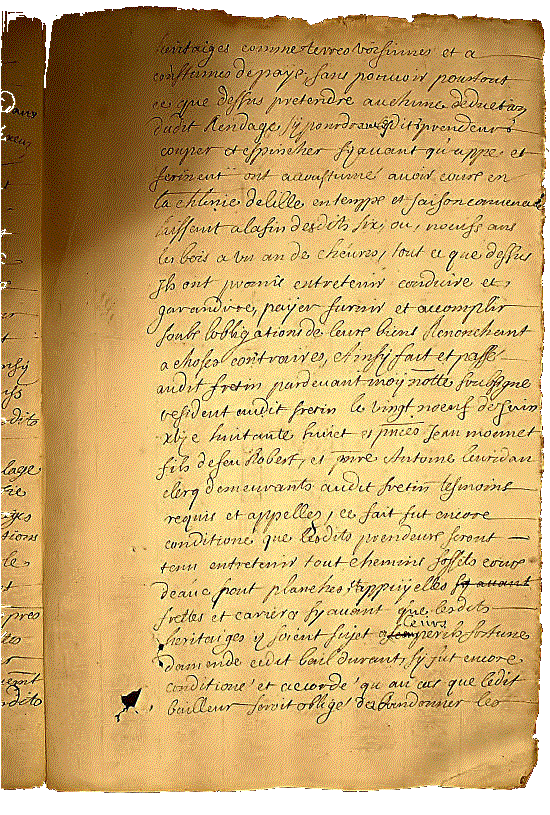 heritaiges comme terres voisinnes et a
coustumes de pays, sans pouvoir pourtant
ce que dessus pretendre auchune deduction
dudit Rendage, sy pourdront lesdits prendeurs
couper et espincher sy avant qu'appe et
ferment ont accoustumé avoir cours en
la chlenie de lille en temps et saison convenable
laissant a la fin desdits six, ou, noeuf ans
les bois a un an de cheures, tout ce que dessus
Ils ont promis entretenir conduire et
garandire, payer furnir et accomplir
soubz lobligations de leurs biens Renonchant
a choses contraires, Ainsy fait et passé
audit fretin pardevant moy nottre soubsigné
resident audit fretin le vingt noeuf de Juin
xvj c huitante huict es pnces Jean monnet
fils de feu Robert, et pire Antoine leuridan
clercq demeurants audit fretin tesmoins
requis et appellez, ce fait fut encore
conditioné que lesdits prendeurs seront
tenu entretenir tout chemins fossets cours
deauc pont planches et appuyelles sy avant
frettes et cariere sy avant que lesdits
heritaiges y soient sujet a leurs perils fortune
damende cedit bail durant, sy fut encore
conditioné et accordé qu'au cas que ledit
bailleur seroit obligé dabandonner les